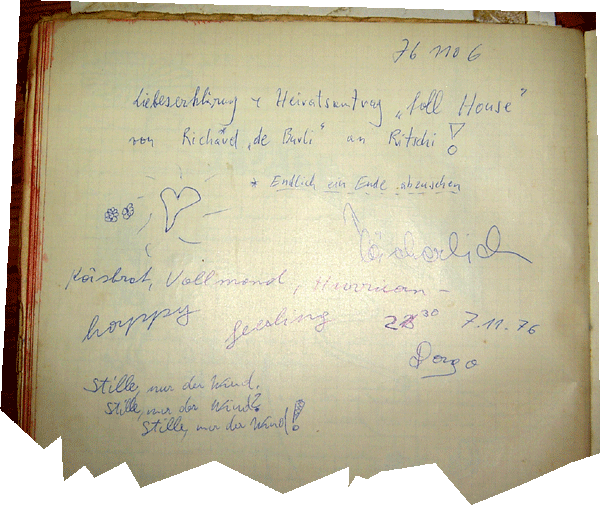 76 1106
Liebeserklärung + Heiratsantrag „Full House"
von Richard „de Burli" an Ritschi!
* Endlich ein Ende abzusehen
Lächerlich
Käsbrot, Vollmond, Hurrican -
happy feeling 23³⁰ 7.11.76
Stille, nur der Wind.
Stille, nur der Wind?
Stille, nur der Wind!